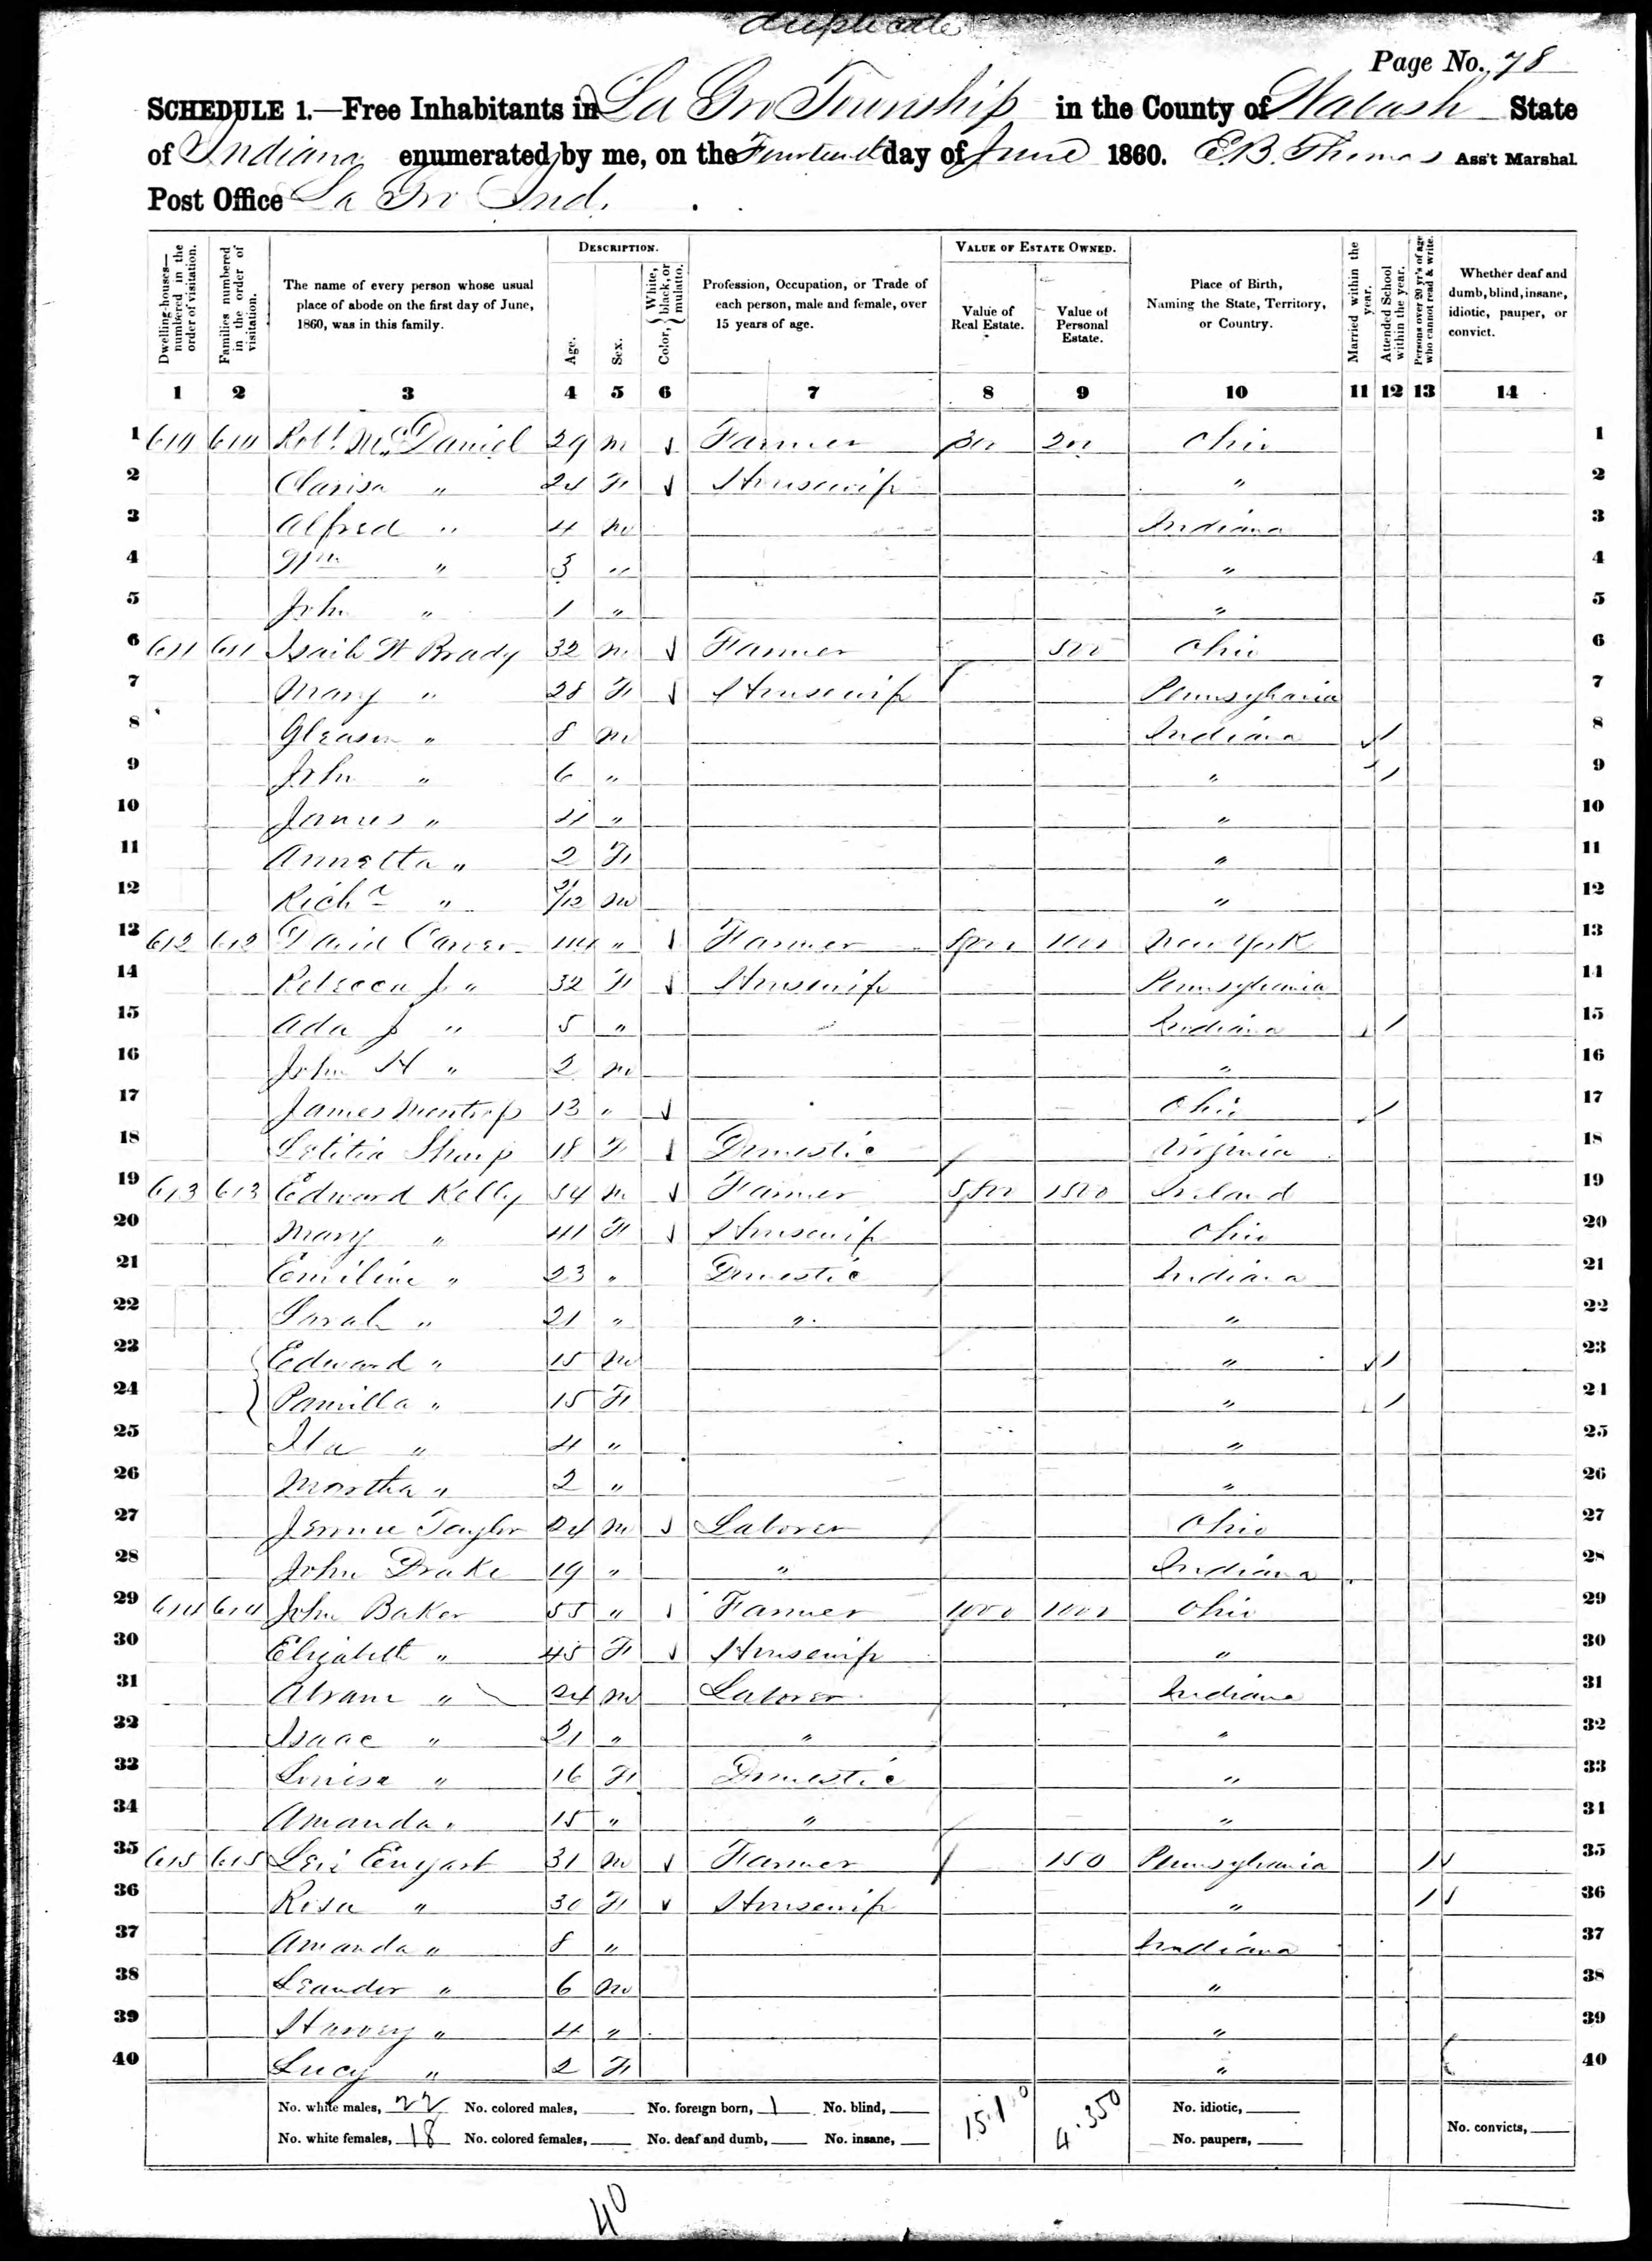 duplicate
Page No. 78
SCHEDULE 1.—Free Inhabitants in La Gro Township in the County of Wabash State
of Indiana enumerated by me, on the Fourteenth day of June 1860. E.B. Thomas Ass't Marshal.
Post Office La Gro Ind.
DESCRIPTION. VALUE OF ESTATE OWNED.
Dwelling-houses—numbered in the order of visitation.
Families numbered in the order of visitation.
The name of every person whose usual place of abode on the first day of June, 1860, was in this family.
Age.
Sex.
Color, { White, black, or mulatto.
Profession, Occupation, or Trade of each person, male and female, over 15 years of age.
Value of Real Estate.
Value of Personal Estate.
Place of Birth, Naming the State, Territory, or Country.
Married within the year.
Attended School within the year.
Persons over 20 yr's of age who cannot read & write.
Whether deaf and dumb, blind, insane, idiotic, pauper, or convict.
1 2 3 4 5 6 7 8 9 10 11 12 13 14
1 Robt. McDaniel 29 m Farmer Ohio 1
2 Clarisa " 24 F Housewife " 2
3 Alfred " 4 m Indiana 3
4 Wm " 3 " " 4
5 John " 1 " " 5
6 611 611 Brady 32 m Farmer 500 Ohio 6
7 Mary " 28 F Housewife Pennsylvania 7
8 Gleason " 8 m Indiana / 8
9 John " 6 " " / 9
10 James " 4 " " 10
11 Annetta " 2 F " 11
12 Richd " m " 12
13 612 612 David Carver 44 " Farmer 8000 1000 New York 13
14 Rebecca J " 32 F Housewife Pennsylvania 14
15 Ada J " 5 " Indiana / 15
16 John H " 2 m " 16
17 James 13 " Ohio / 17
18 Letitia Sharp 18 F Domestic Virginia 18
19 613 613 Edward Kelly 54 m Farmer 1500 Ireland 19
20 Mary " 41 F Housewife Ohio 20
21 Emiline " 23 " Domestic Indiana 21
22 Sarah " 21 " " " 22
23 Edward " 15 m " / 23
24 Pamilla " 15 F " / 24
25 Ila " 4 " " 25
26 Martha " 2 " " 26
27 Taylor 24 m Laborer Ohio 27
28 John Drake 19 " " Indiana 28
29 614 614 John Baker 55 " Farmer 1000 1000 Ohio 29
30 Elizabeth " 45 F Housewife " 30
31 Abram " 24 m Laborer Indiana 31
32 Isaac " 21 " " " 32
33 Louisa " 16 F Domestic " 33
34 Amanda " 15 " " " 34
35 615 615 Levi Enyart 31 m Farmer 150 Pennsylvania / 35
36 Rosa " 30 F Housewife " / 36
37 Amanda " 8 " Indiana 37
38 Leander " 6 m " 38
39 Harvey " 4 " " 39
40 Lucy " 2 F " 40
No. white males, 22 No. colored males, No. foreign born, 1 No. blind, No. idiotic,
No. white females, 18 No. colored females, No. deaf and dumb, No. insane, 4.350 No. paupers, No. convicts,
40